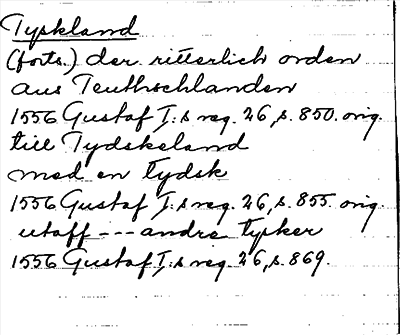 Tyskland
(forts.) der ritterlich orden
aus Teuthschlanden
1556 Gustaf I:s reg. 26, s. 850. orig.
till Tydskeland
med en tydsk
1556 Gustaf I:s reg. 26, s. 855. orig.
utaff --- andre tysker
1556 Gustaf I:s reg. 26, s. 869.